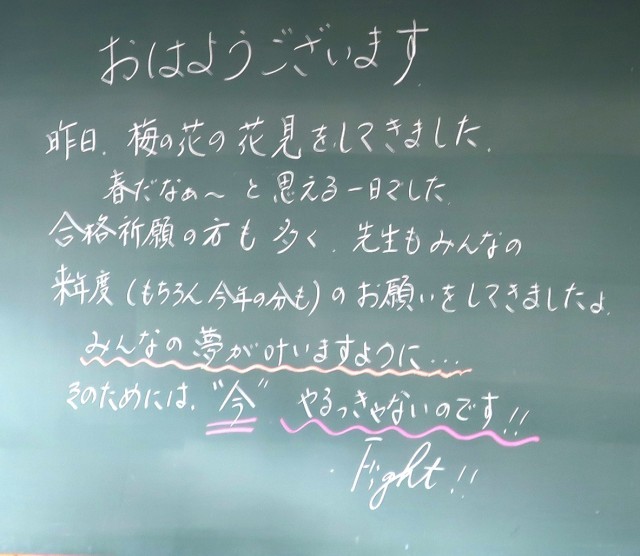 おはようございます
昨日、梅の花の花見をしてきました。
春だなぁ～と思える一日でした
合格祈願の方も多く、先生もみんなの
来年度(もちろん今年の分も)のお願いをしてきましたよ。
みんなの夢が叶いますように…
そのためには、"今"やるっきゃないのです!!
Fight!!